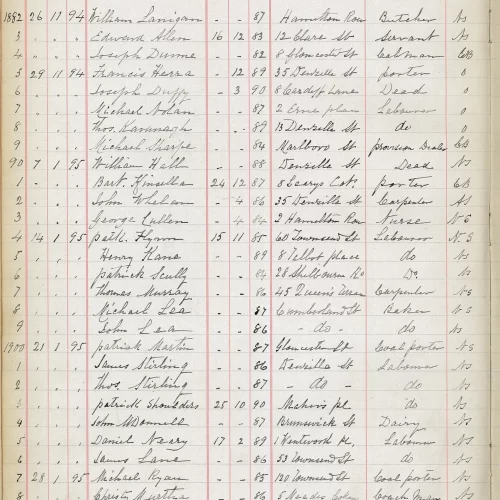 1882 26 11 94 William Lanigan - - 87 Hamilton Row Butcher Ns
3 " " " Edward Allen 16 12 83 12 Clare St Servant Ns
4 " " " Joseph Dunne - - 82 8 Gloucester St Cabman CB
5 29 11 94 Francis - 12 89 35 Denzille St porter 0
6 " " " Joseph Duffy - 3 90 8 Cardiff Lane Dead 0
7 " " " Michael Nolan - - 87 2 Erne place Labourer 0
8 " " " Thos. Kavanagh - - 89 13 Denzille St do 0
9 " " " Michael Sharpe - - 84 Marlboro St provision Dealer CB
90 7 1 95 William Hall - - 88 Denzille St Dead Ns
1 " " " Bart. Kinsella 24 12 87 8 Cot. porter CB
2 " " " John Whelan - 4 86 35 Denzille St Carpenter
3 " " " George Cullen - 4 84 2 Hamilton Row Nurse N S
4 14 1 95 patk. Flynn 15 11 85 60 Townsend St Labourer N. S
5 " " " Henry Kane - - 89 8 Talbot place do Ns
6 " " " patrick Scully - - 84 28 Shelbourne Rd Do. Ns
7 " " " Thomas Murray - - 86 45 Queen's Carpenter Ns
8 " " " Michael Lea - - 87 Cumberland St Baker Ns
9 " " " John Lea - - 86 - do - do Ns
1900 21 1 95 patrick Martin - - 87 Gloucester St Coal porter Ns
1 " " " James Stirling - - 86 Denzille St Labourer Ns
2 " " " Thos. Stirling - - 87 - do - do Ns
3 " " " patrick Shoulders 25 10 90 pl. do Ns
4 " " " John McDonnell - - 87 Brunswick St Dairy Ns
5 " " " Daniel Neary 17 2 89 1 Wentworth Pl. Labourer Ns
6 " " " James Lane - - 86 53 Townsend St do Ns
7 28 1 95 Michael Ryan - - 85 120 Townsend St Coal porter Ns
8 " " " - - 86 Coach Man Ns